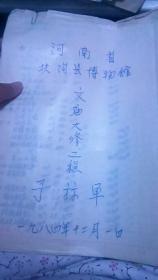 河南省
扶沟县博物馆
文庙大修工程
予标单
一九八四年十二月一日